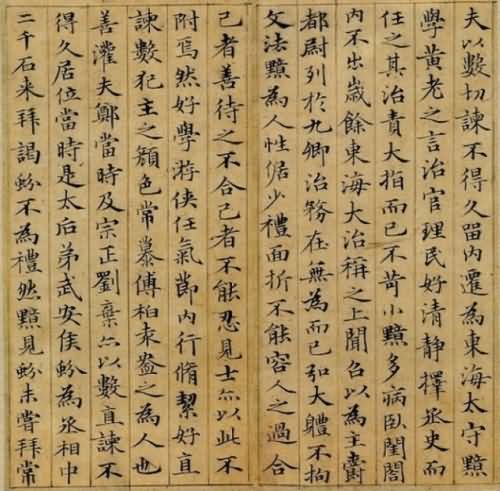 夫以數切諫不得久留内遷為東海太守黯
學黄老之言治官理民好清静擇丞史而
任之其治責大指而已不苛小黯多病卧閨閤
内不出歲餘東海大治稱之上聞召以為主爵
都尉列於九卿治務在無為而已弘大體不拘
文法黯為人性倨少禮面折不能容人之過合
己者善待之不合己者不能忍見士亦以此不
附焉然好學游俠任氣節内行脩絜好直
諫數犯主之顔色常慕傅柏袁盎之為人也
善灌夫鄭當時及宗正劉棄亦以數直諫不
得久居位當時是太后弟武安侯蚡為丞相中
二千石来拜謁蚡不為禮然黯見蚡未嘗拜常